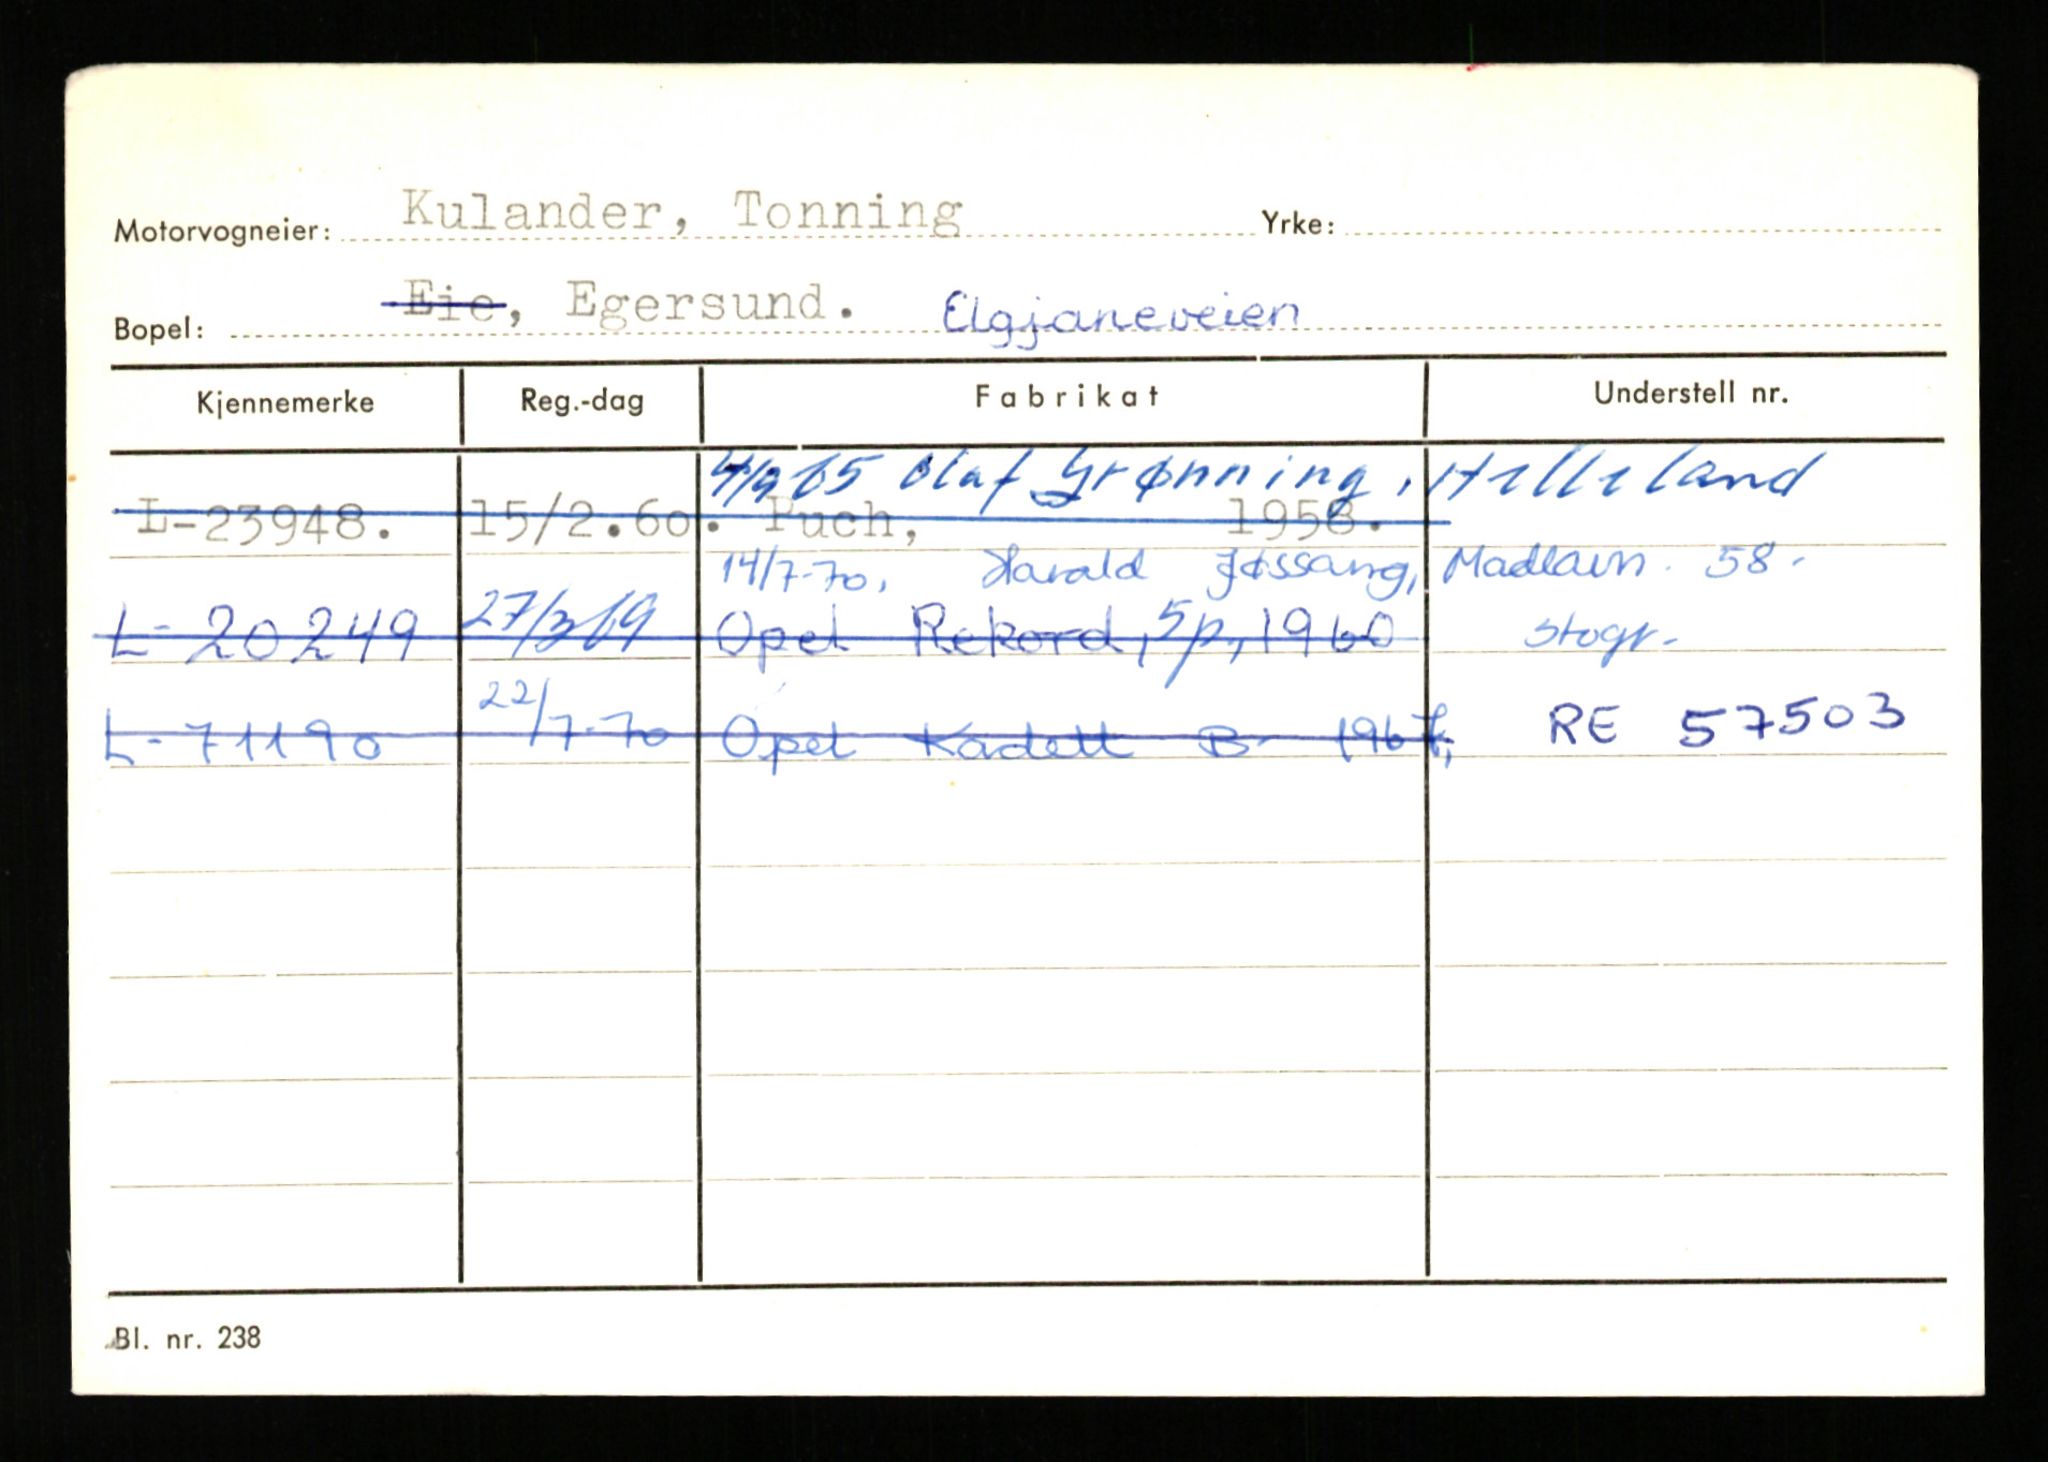 Motorvogneier: Kulander, Tonning Yrke:
Bopel: Eie, Egersund. Elgjaneveien
Kjennemerke Reg.-dag Fabrikat Understell nr.
4/9 65 Olaf Grønning, Helleland
L-23948. 15/2.60. Puch, 1958.
14/7-70, Harald Jøssang, Madlavn. 58.
L-20249 27/3 69 Opel Rekord, 5p., 1960 Stvgr.
L-71190 22/7-70 Opel Kadett B 1967, RE 57503
Bl. nr. 238